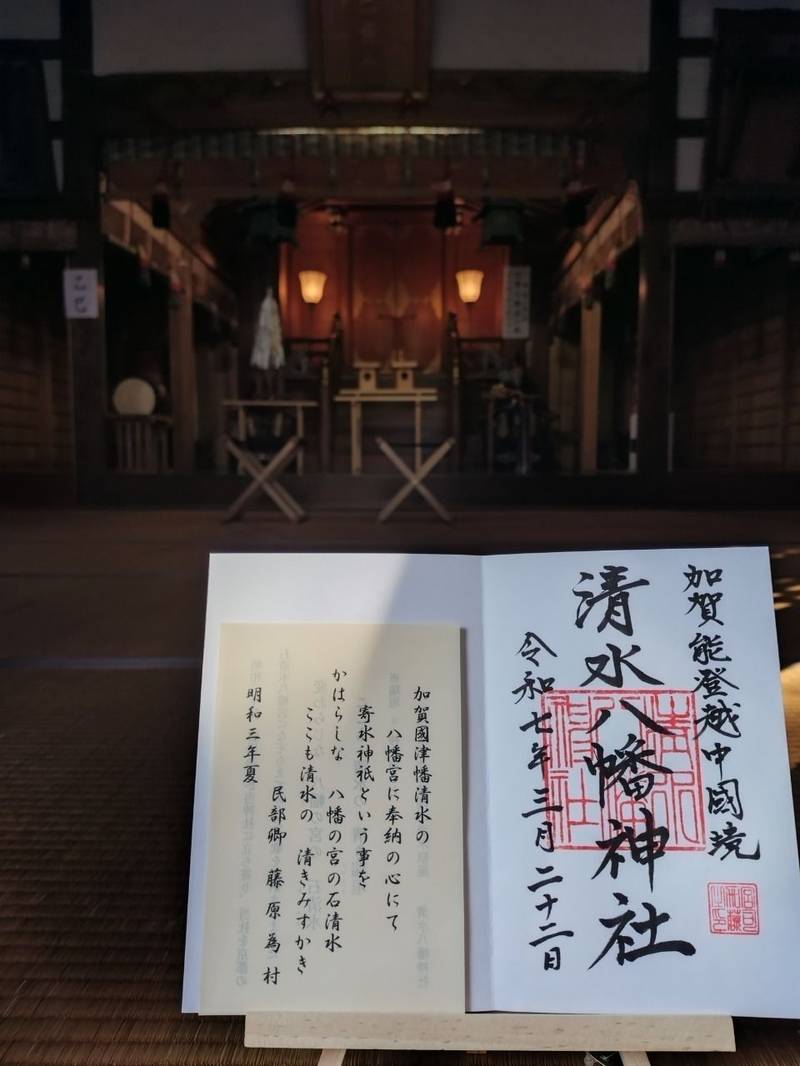 加賀能登越中國境
清水八幡神社
令和七年三月二十二日
加賀國津幡清水の
八幡宮に奉納の心にて
寄水神祇という事を
かはらしな　八幡の宮の石清水
ここも清水の　清きみすかき
民部卿　藤原為村
明和三年夏
乙巳